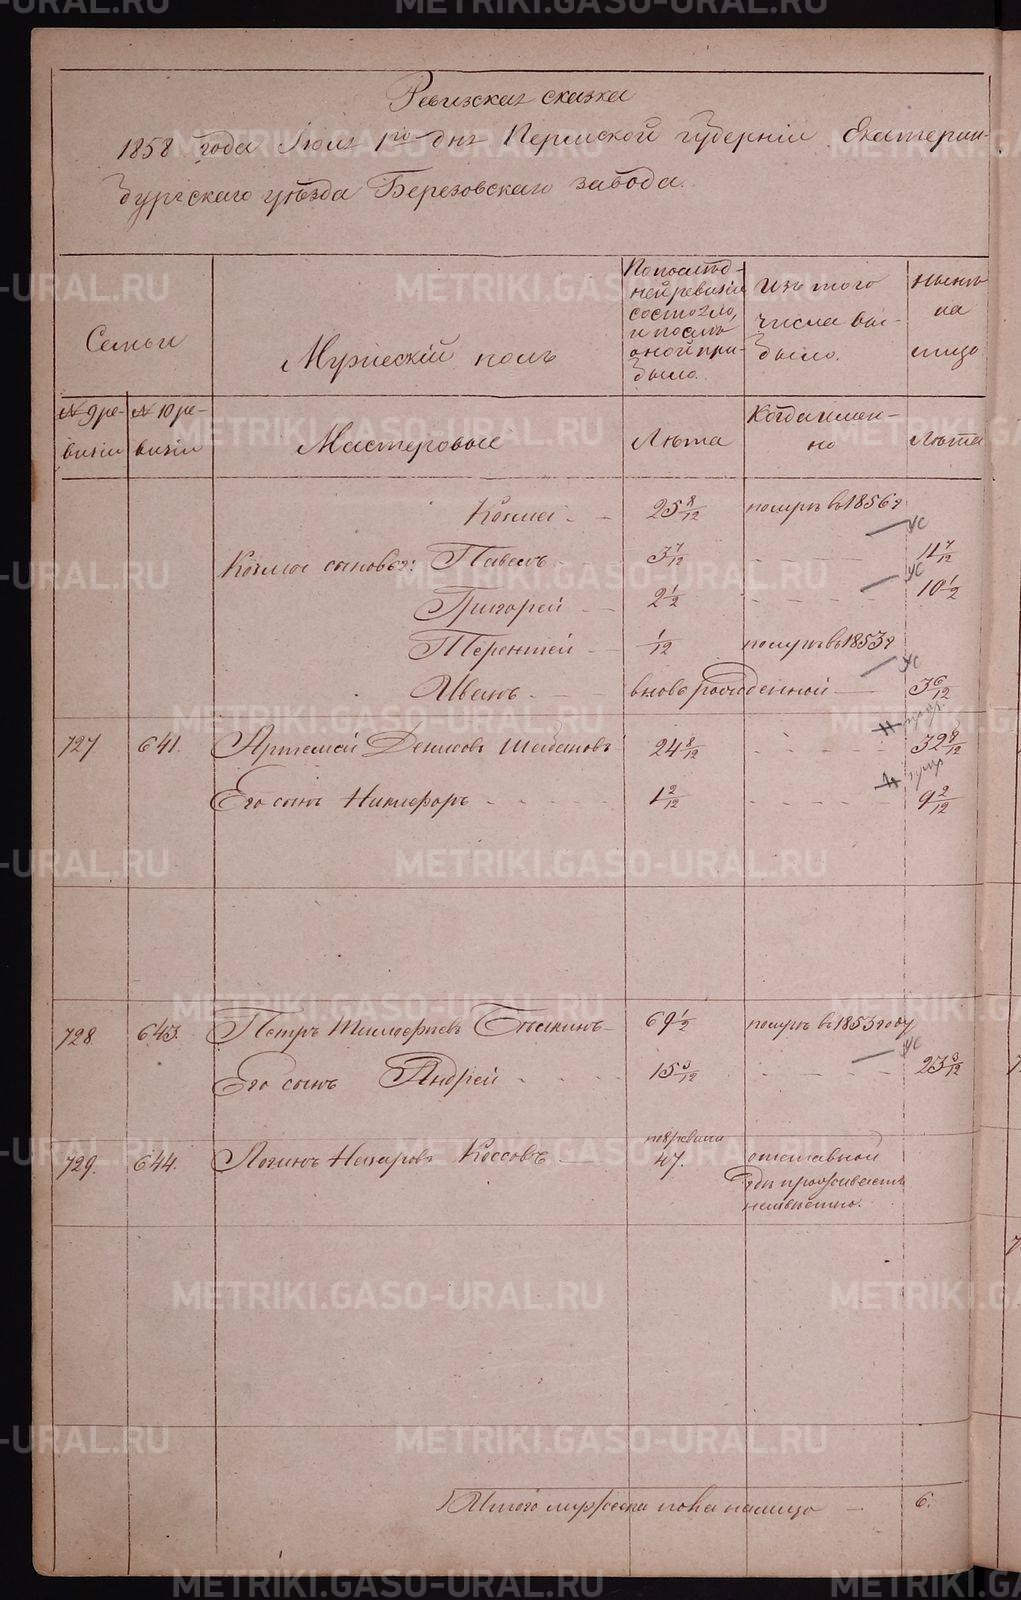 Ревизская сказка
1858 года Іюля 1го дня Пермской губерніи Екатерин-
бургскаго уѣзда Березовскаго завода.
Семьи
Мужескій полъ
По послѣд-
ней ревизіи
состояло,
и послѣ
оной при-
было.
Изъ того
числа вы-
было.
Нынѣ
на
лицо
№ 9 ре-
визіи
№ 10 ре-
визіи
Мастеровые
Лѣта
Когда имен-
но
Лѣта
Козма 25 8/12 померъ въ 1856 г
Козмы сыновья: Павелъ 3 7/12 11 7/12
Григорей 2 1/2 10 1/2
Терентей 1/12 померъ въ 1853 г
Иванъ вновь рожденной 3 6/12
727 641. Артемей Денисовъ Шебановъ 24 8/12 32 8/12
Его сынъ Никифоръ 1 2/12 9 2/12
728 643. Петръ Тимофеевъ 69 1/2 померъ въ 1853 году
Его сынъ Андрей 15 3/12 23 3/12
729. 644. Логинъ Назаровъ Коссовъ по 8 ревизіи 47. отставной
гдѣ проживаетъ
неизвѣстно.
Итого мужеска пола налицо 6.
METRIKI.GASO-URAL.RU